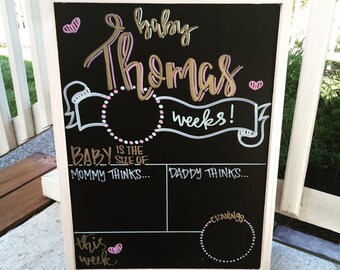 baby
Thomas
weeks!
BABY IS THE SIZE OF
MOMMY THINKS... DADDY THINKS...
CRAVINGS
this week